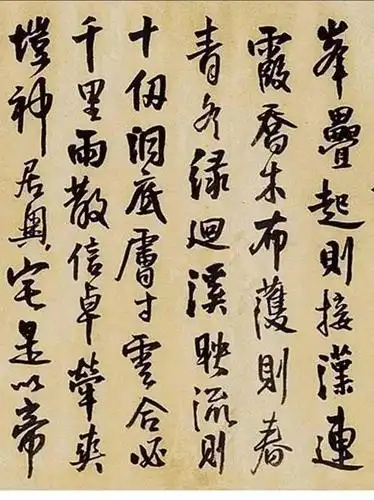 峯疊起則接漢連
霞喬木布濩則春
青冬綠迴溪映流則
十仞洞底膚寸雲合必
千里雨散信卓犖爽
塏神居奧宅是以帝